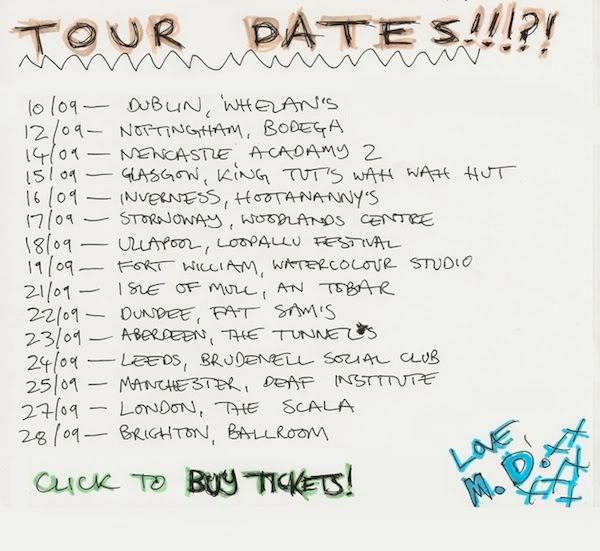 TOUR DATES!!!?!
10/09 — DUBLIN, WHELAN'S
12/09 — NOTTINGHAM, BODEGA
14/09 — NEWCASTLE, ACADAMY 2
15/09 — GLASGOW, KING TUT'S WAH WAH HUT
16/09 — INVERNESS, HOOTANANNY'S
17/09 — STORNOWAY, WOODLANDS CENTRE
18/09 — ULLAPOOL, LOOPALLU FESTIVAL
19/09 — FORT WILLIAM, WATERCOLOUR STUDIO
21/09 — ISLE OF MULL, AN TOBAR
22/09 — DUNDEE, FAT SAM'S
23/09 — ABERDEEN, THE TUNNELS
24/09 — LEEDS, BRUDENELL SOCIAL CLUB
25/09 — MANCHESTER, DEAF INSTITUTE
27/09 — LONDON, THE SCALA
28/09 — BRIGHTON, BALLROOM
CLICK TO BUY TICKETS!
LOVE,
M.D.